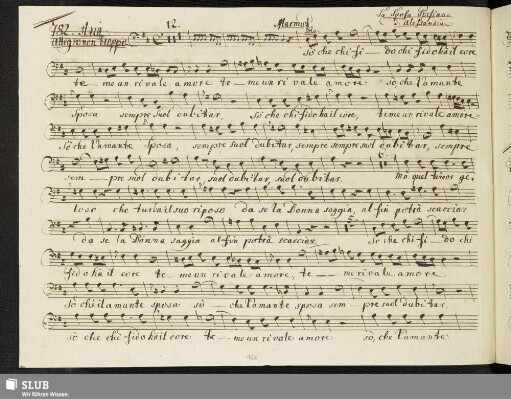 182. Aria
12
Macmut
La Sposa Persiana
Allegro non troppo
Solo
D'Alessandri
Sò che chi fi - do chi fido hà il core
te me un rivale amore te - me un rivale amore sò, che l'amante
sposa sempre suol dubitar, Sò che chi fido hà il core, teme un rivale amore
Sò che l'amante sposa, sempre suol dubitar, sempre sempre suol dubitar, sempre
sem - pre suol dubitar, suol dubitar, suol dubitar. Mà quel timor ge-
loso che turba il suo riposo da se la Donna saggia, al fin potrà scacciar
da se la Donna saggia al fin potrà scacciar. Sò che chi fi - do chi
fido hà il core te - me un rivale amore, te - me rivale amore
Sò che l'amante sposa sò - che l'amante sposa sem pre suol dubitar,
sò che chi fido hà il core te - me un rivale amore sò, che l'amante
SLUB
Wir führen Wissen.